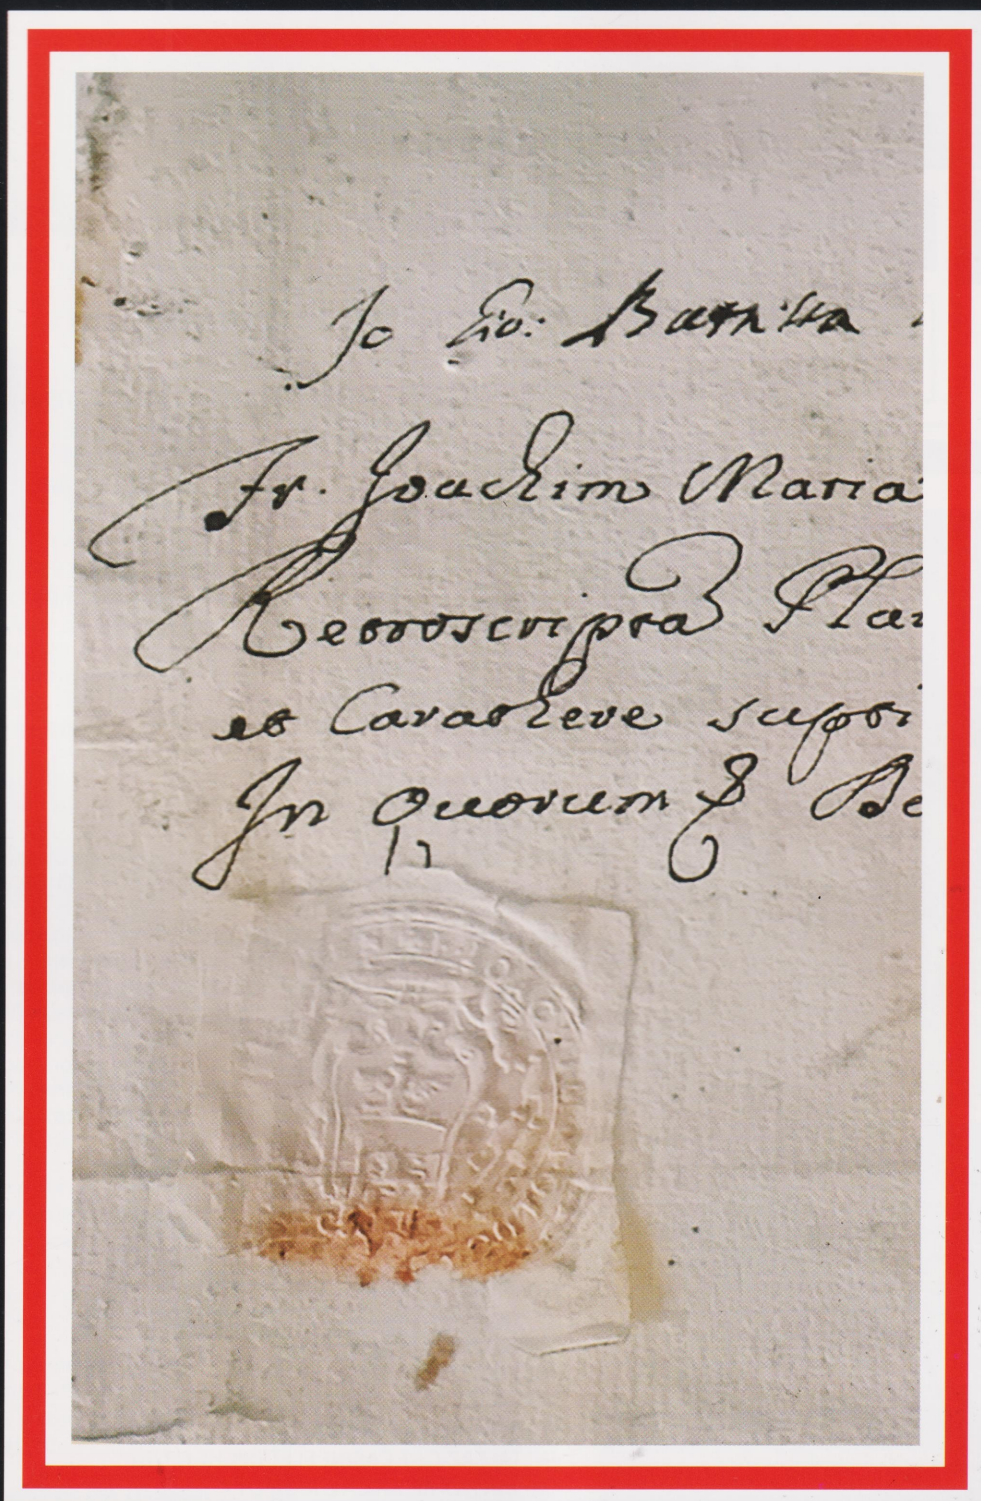 Jo Gio: Battista
Fr. Joachim Maria
Retroscripta Pla
et Carathere supti
In quorum